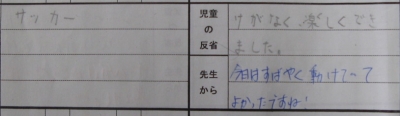 サッカー
児童の反省
けがなく、楽しくでき
ました。
先生から
今日はすばやく動けてて
よかったですね!